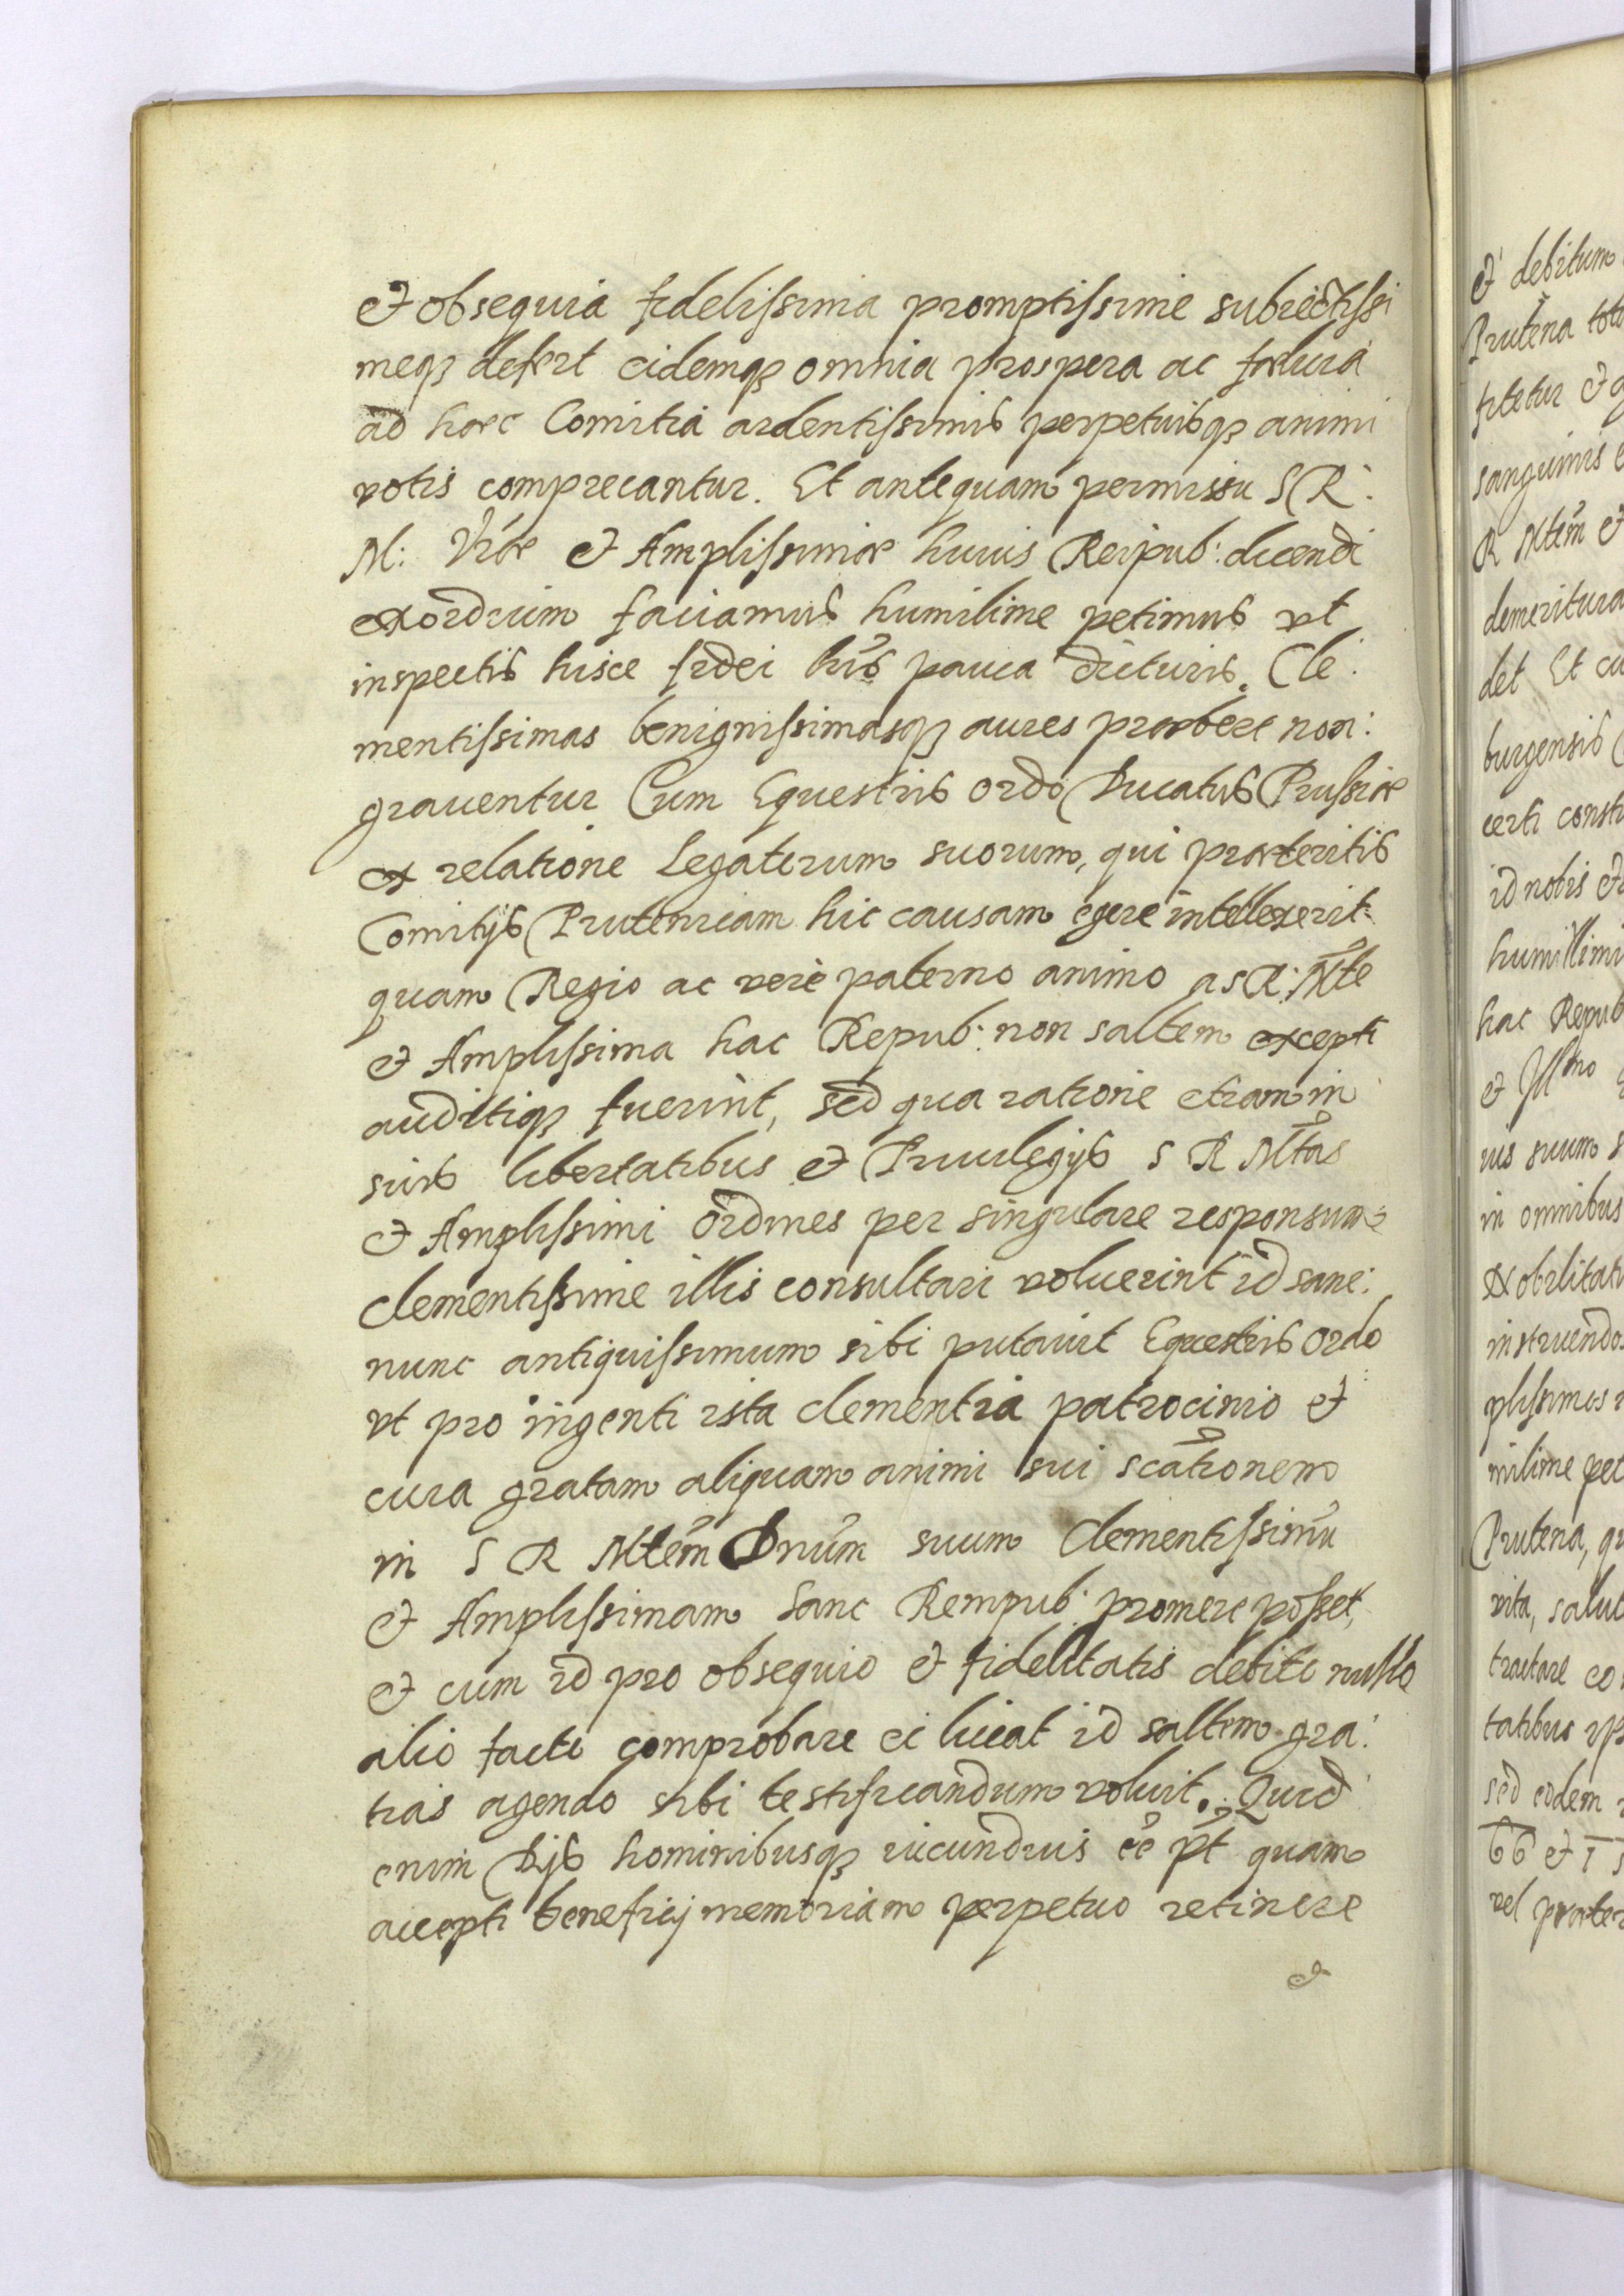 et obsequia fidelissima promptissime subiectissi
meqз defert eidemqз omnia prospera ac fælicia
ad hæc Comitia ardentissimis perpetuisqз animi
votis comprecantur. Et antequam permissu S R:
M: Vræ et Amplissimæ huius Reipub: dicendi
exordium faciamus humilime petimus vt
inspectis hisce fidei lris pauca dicturis. Cle:
mentissimas benignissimasqз aures præbere non:
grauentur Cum Equestris ordo Ducatus Prussiæ
ex relatione Legatorum suorum, qui præteritis
Comitijs Prutenicam hic causam egere intellexerit:
quam Regio ac verè paterno animo a S R: Mte
et Amplissima hac Repub: non saltem excepti
auditiqз fuerint, sed qua ratione etiam in
suis libertatibus et Priuilegijs S R Mtas
et Amplissimi ordines per singulare responsum
clementissime illis consultari voluerint id sane:
nunc antiquissimum sibi putauit Equestris ordo
vt pro ingenti ista clementia patrocinio et
cura gratam aliquam animi sui scationem
in S R Mtem Dnum suum Clementissimu
et Amplissimam hanc Rempub: promere posset,
et cum id pro obsequio et fidelitatis debito nullo
alio facto comprobare ei liceat id saltem gra:
tias agendo sibi testificandum voluit. Quid
enim Dijs hominibusqз iucundius ee pt quam
accepti beneficij memoriam perpetuo retinere
et
et debitum
Prutena
fitetur et
sanguinis
R Mtem et
demeritura
det Et cu
burgensis
certi
id nobis
humillimi
hac Repub
et Illmo
ius suum s
in omnibus
Nobilitati
instruendos
plissimos
milime pet
Prutena, qu
vita, salut
tractare co
tatibus
sed eodem
66 et
vel præter